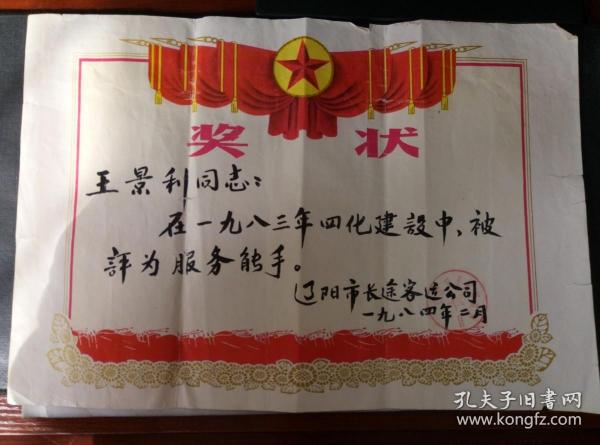 奖状
王景利同志：
在一九八三年四化建設中、被
評为服务能手。
辽阳市长途客运公司
一九八四年二月
孔夫子旧书网
www.kongfz.com